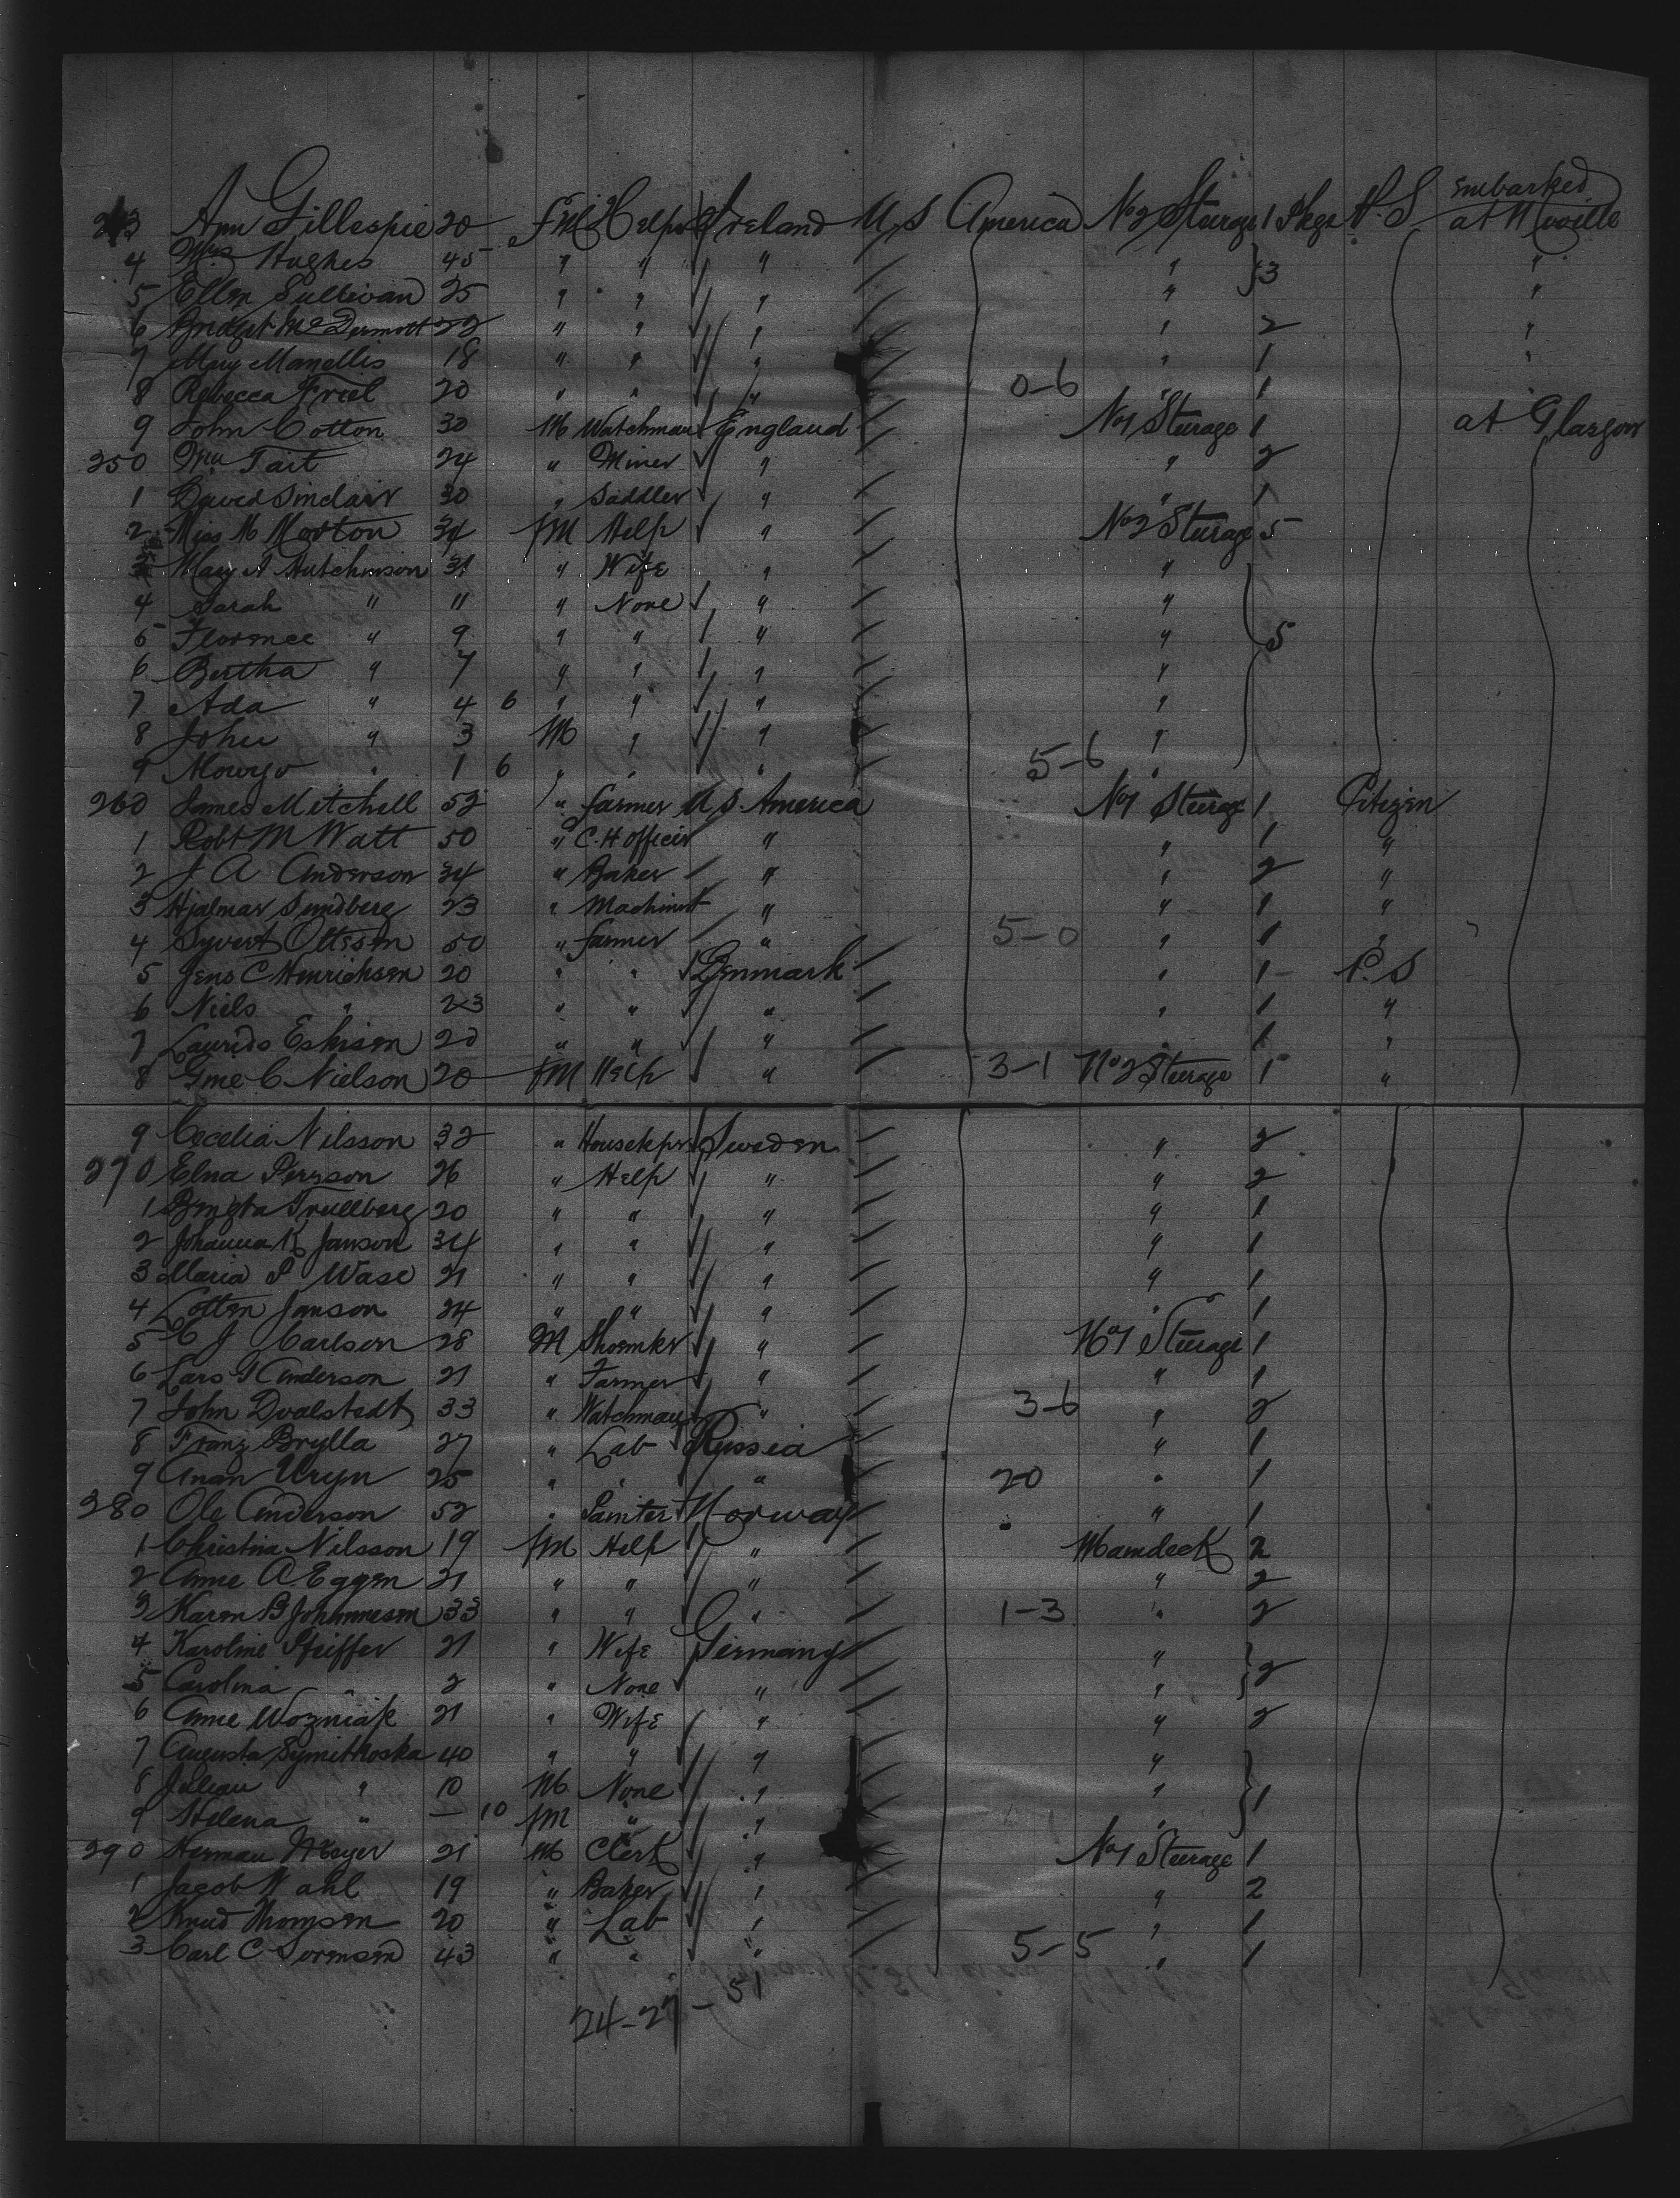 243 Ann Gillespie 20 FM Help Ireland U.S America No 2 Sturage 1 Pkge P.S Embarked at Moville
4 Mrs Hughes 45 " " " " } 3 "
5 Ellen Sullivan 25 " " " " "
6 Bridget McDermott 22 " " " " 2 "
7 Mary 18 " " " " 1 "
8 Rebecca Friel 20 " " " 0-6 " 1 "
9 John Cotton 30 M Watchman England No 1 Sturage 1 at Glasgow
250 Wm Tait 24 " Miner " " 2
1 David Sinclair 30 " Saddler " " 1
2 Miss M Morton 34 fM Help " No 2 Sturage 5
3 Mary A Hutchinson 31 " Wife " "
4 Sarah " 11 " None " "
5 Florence " 9 " " " " } 5
6 Bertha " 7 " " " "
7 Ada " 4 6 " " " "
8 John " 3 M " " "
9 " 1 6 " " " 5-6 "
260 James Mitchell 52 " farmer U.S. America No 1 Sturage 1 Citizen
1 Robt M Watt 50 " C.H officer " " 1 "
2 J A Anderson 34 " Baker " " 2 "
3 Hjalmar Sundberg 23 " Machinist " " 1 "
4 Syvert Ottesen 50 " farmer " 5-0 " 1 "
5 Jens C Henrichsen 20 " " Denmark " 1 P.S
6 Niels " 23 " " " " 1 "
7 Laurids Eskisen 20 " " " " 1 "
8 C Nielson 20 fM Help " 3-1 No 2 Sturage 1 "
9 Cecelia Nilsson 32 " Housekpr Sweden " 2
270 Elna Persson 26 " Help " " 2
1 Bengta Trullberg 20 " " " " 1
2 Johanna K Janson 34 " " " " 1
3 Maria S Wase 21 " " " " 1
4 Lotten Janson 24 " " " " 1
5 C J Carlson 28 M Shoemkr " No 1 Sturage 1
6 Lars Anderson 21 " Farmer " " 1
7 John Dvalstedt 33 " Watchman " 3-6 " 2
8 Franz Brylla 27 " Lab Russia " 1
9 Uryn 25 " " " 2-0 " 1
280 Ole Anderson 52 " Painter Norway " 1
1 Christina Nilsson 19 fM Help " Maindeck 2
2 Anne A. Eggen 21 " " " " 2
3 Karen B Johannesen 33 " " " 1-3 " 2
4 Karoline Pfeiffer 21 " Wife Germany "
5 Carolina " 2 " None " " } 2
6 Anne Wozniak 21 " Wife " " 2
7 Augusta 40 " " " "
8 Julian " 10 M None " " } 1
9 Helena " — 10 fM " " "
290 Herman Meyer 21 M Clerk " No 1 Sturage 1
1 Jacob Wahl 19 " Baker " " 2
2 Knud Thomsen 20 " Lab " " 1
3 Carl C Sorensen 43 " " " 5-5 " 1
24-27-51